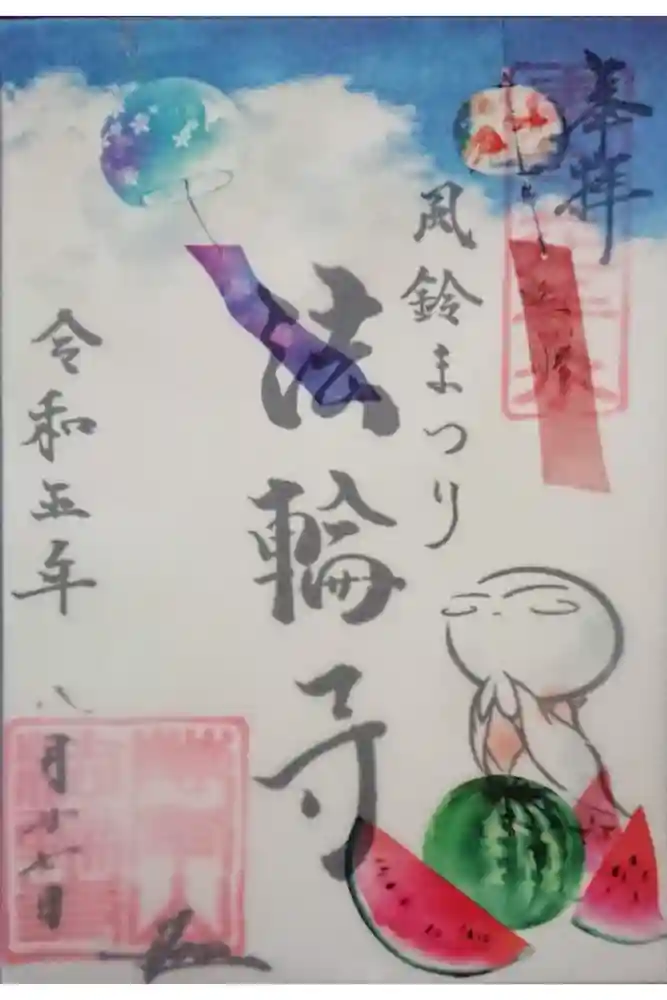 奉拝
風鈴まつり
法輪寺
令和五年 八月廿七日